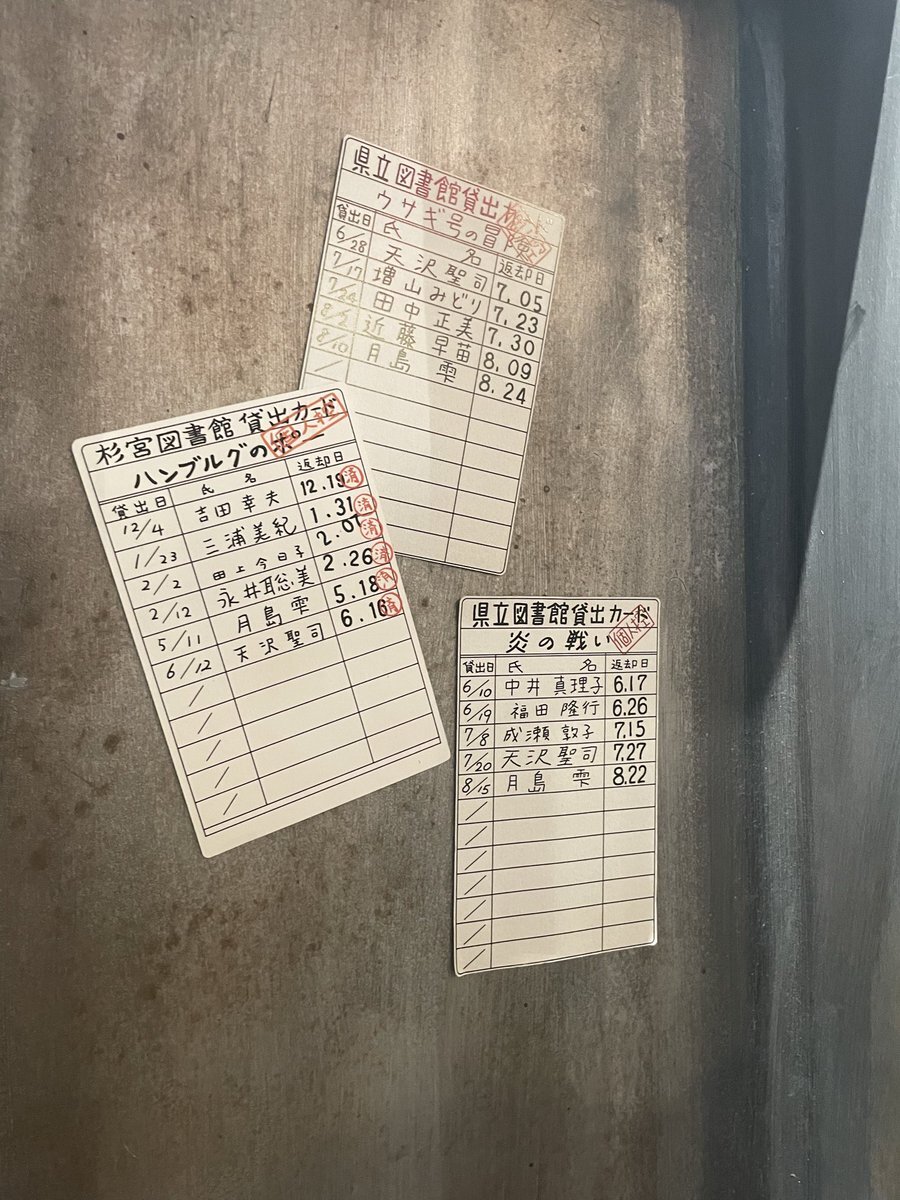 県立図書館貸出カード
ウサギ号の冒険
貸出日 氏 名 返却日
6/28 天沢聖司 7.05
7/17 増山みどり 7.23
7/24 田中正美 7.30
8/2 近藤早苗 8.09
8/10 月島雫 8.24
杉宮図書館 貸出カード
ハンブルグのポニー
貸出日 氏 名 返却日
12/4 吉田幸夫 12.19 済
1/23 三浦美紀 1.31 済
2/2 田上今日子 2.07 済
2/12 永井聡美 2.26 済
5/11 月島雫 5.18 済
6/12 天沢聖司 6.16 済
県立図書館貸出カード
炎の戦い
貸出日 氏 名 返却日
6/10 中井真理子 6.17
6/19 福田隆行 6.26
7/8 成瀬敦子 7.15
7/20 天沢聖司 7.27
8/15 月島雫 8.22